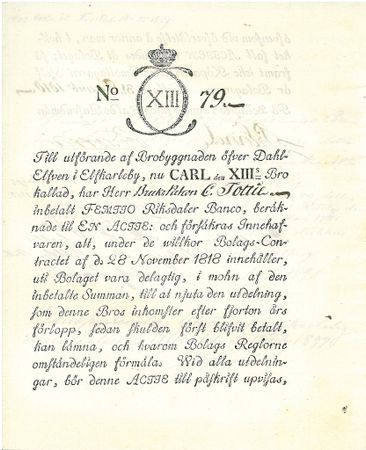 No XIII 79.—
Till utförande af Brobyggnaden öfver Dahl-
Elfven i Elfkarleby, nu CARL den XIIIs Bro
kallad, har Herr C. Tottie
inbetalt FEMTIO Riksdaler Banco, beräk-
nade til EN ACTIE: och försäkras Innehaf-
varen, att, under de willkor Bolags-Con-
tractet af d. 28 November 1818 innehåller,
uti Bolaget vara delagtig, i mohn af den
inbetalte Summan, till at njuta den utdelning,
som denne Bros inkomster efter fjorton års
förlopp, sedan skulden först blifvit betalt,
kan lämna, och hvarom Bolags Reglorne
omständeligen förmäla. Wid alla utdelnin-
gar, bör denne ACTIE till påskrift upvisas,